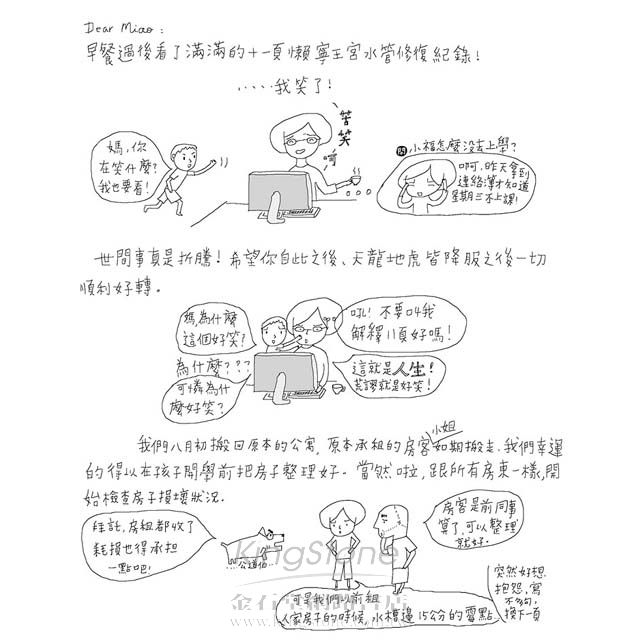 Dear Miao:
早餐過後看了滿滿的十一頁懶寧王宮水管修復紀錄!
.....我笑了!
苦笑
啊
媽,你
在笑什麼?
我也要看!
問 小福怎麼沒去上學?
啊,昨天拿到
連絡簿才知道
星期三不上課!
世間事真是折騰!希望你自此之後、天龍地虎皆降服之後一切
順利好轉。
媽,為什麼
這個好笑?
為什麼???
可憐為什
麼好笑?
吼!不要叫我
解釋11頁好嗎!
這就是人生!
荒謬就是好笑!
我們八月初搬回原本的公寓,原本承租的房客小姐如期搬走,我們幸運
的得以在孩子開學前把房子整理好。當然啦,跟所有房東一樣,開
始檢查房子損壞狀況。
拜託,房租都收了
耗損也得承担
一點吧!
公道伯
房客是前同事
算了,可以整理
就好。
可是我們以前租
人家房子的時候,水槽邊15公分的霉點
突然好想
抱怨,寫
不夠,
換下一頁
KingStone
金石堂網路書店
www.kingstone.com.tw